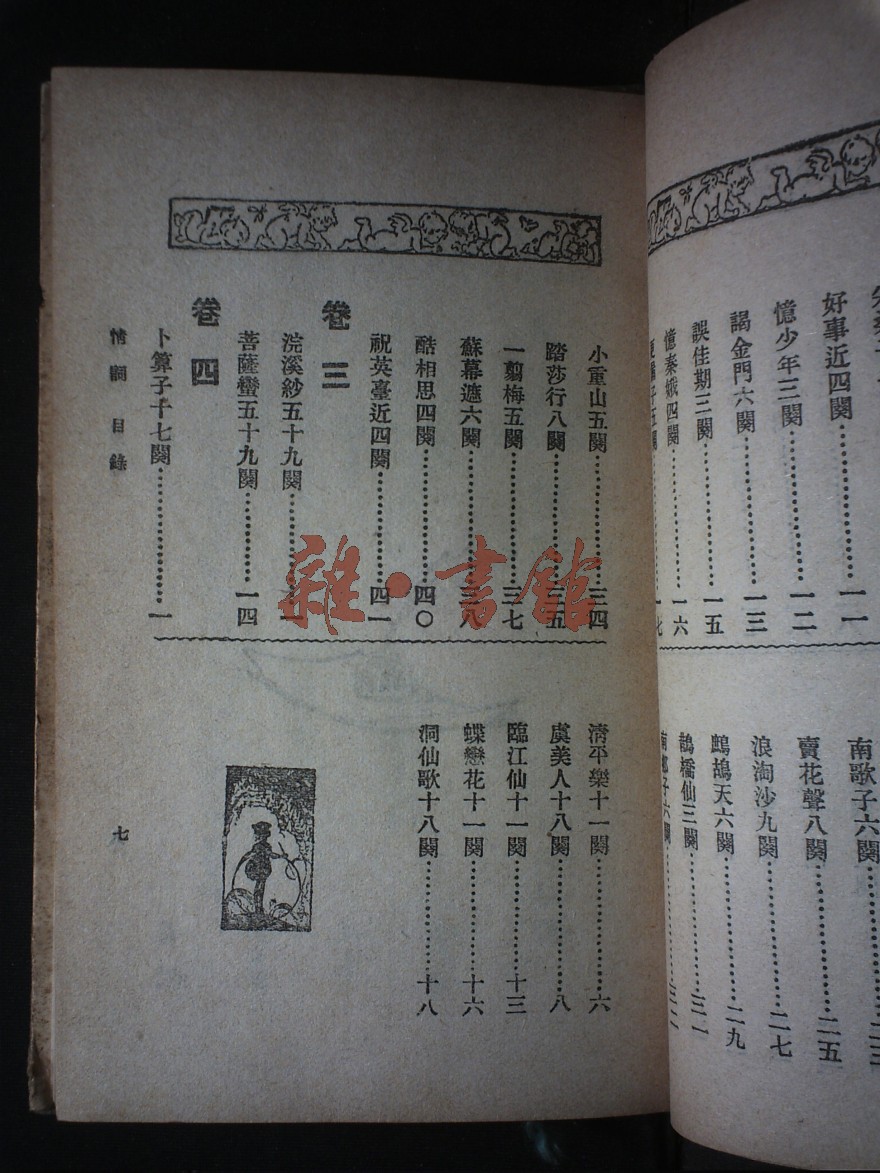 好事近四闋⋯⋯一一
憶少年三闋⋯⋯一二
謁金門六闋⋯⋯一三
誤佳期三闋⋯⋯一五
憶秦娥四闋⋯⋯一六
南歌子六闋⋯⋯二三
賣花聲八闋⋯⋯二五
浪淘沙九闋⋯⋯二七
鷓鴣天六闋⋯⋯二九
鵲橋仙三闋⋯⋯三一
小重山五闋⋯⋯三四
踏莎行八闋⋯⋯三五
一翦梅五闋⋯⋯三七
蘇幕遮六闋⋯⋯三八
酷相思四闋⋯⋯四〇
祝英臺近四闋⋯⋯四一
卷三
浣溪紗五十九闋⋯⋯一
菩薩蠻五十九闋⋯⋯一四
卷四
卜算子十七闋⋯⋯一
清平樂十一闋⋯⋯六
虞美人十八闋⋯⋯八
臨江仙十一闋⋯⋯十三
蝶戀花十一闋⋯⋯十六
洞仙歌十八闋⋯⋯十八
情詞 目錄
七
雜·書館